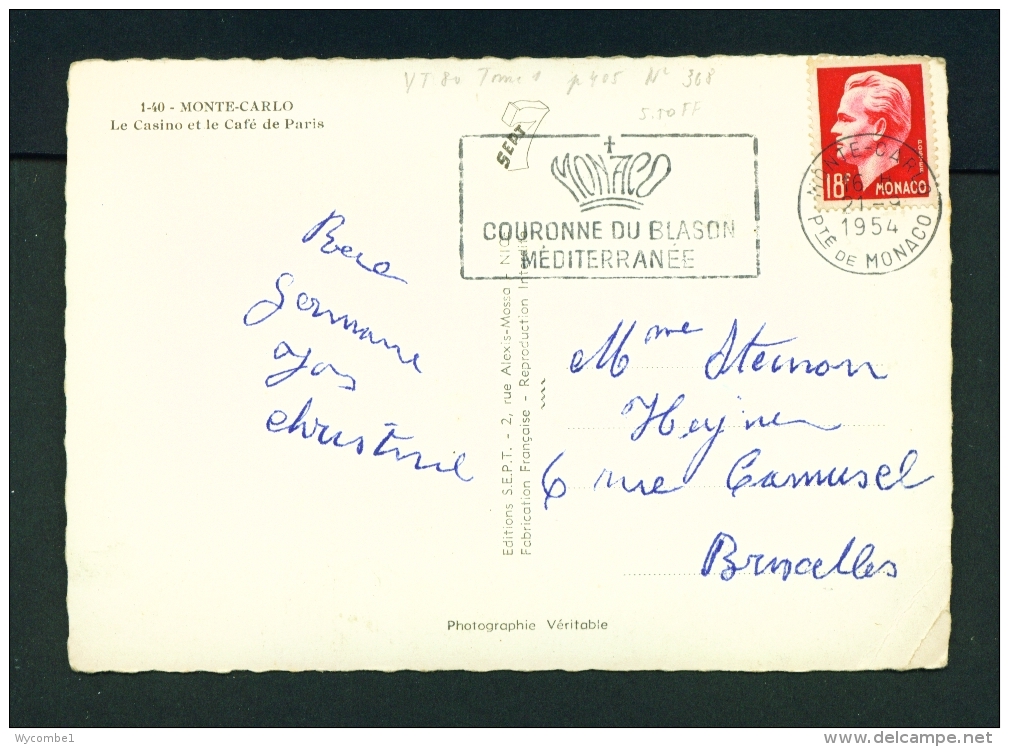 VT 80 Tome 1 p 405 N° 368
5.50 FF
1-40 - MONTE-CARLO
Le Casino et le Café de Paris
SEPT
MONACO
COURONNE DU BLASON
MÉDITERRANÉE
MONTE-CARLO
21
1954
PTÉ DE MONACO
18F MONACO
Germaine
Christine
Mme Steinon
6 rue Camusel
Bruxelles
Editions S.E.P.T. - 2, rue Alexis-Mossa - NICE
Fabrication Française - Reproduction Interdite
Photographie Véritable
Wycombe1
delcampe.net